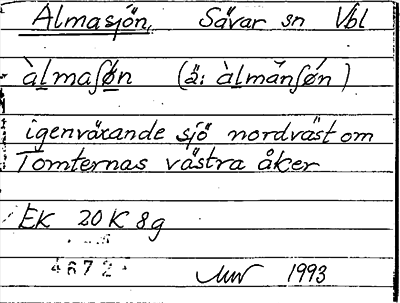 Älmasjön, Sävar sn Vbl
àlmaʃǿn (ä: àlmånʃǿn)
igenväxande sjö nordväst om
Tomternas västra åker
EK 20K 8g
4672
1993